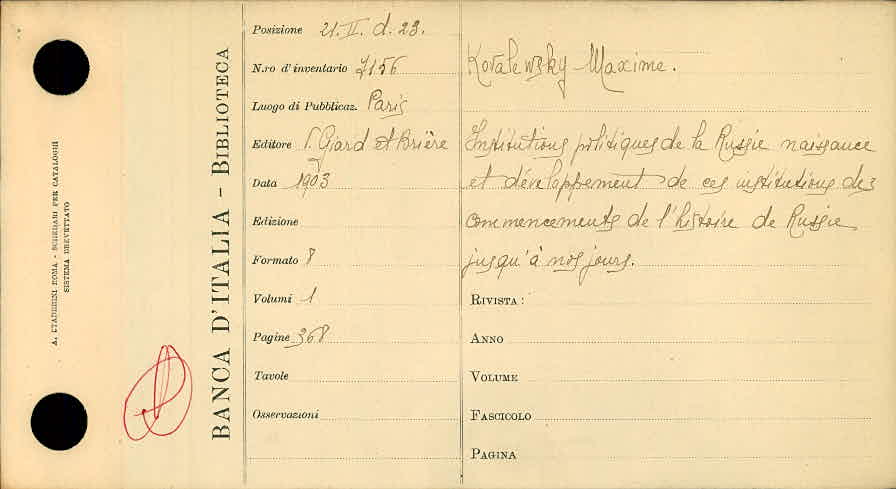 A. STADERINI ROMA - SCHEDARI PER CATALOGHI
SISTEMA BREVETTATO
BANCA D'ITALIA - BIBLIOTECA
Posizione 21. II. d. 23.
N.ro d'inventario 7156
Luogo di Pubblicaz. Paris
Editore V. Giard et Brière
Data 1903
Edizione
Formato 8
Volumi 1
Pagine 368
Tavole
Osservazioni
Kovalewsky Maxime.
Institutions politiques de la Russie naissance
et développement de ces institutions des
commencements de l'histoire de Russie
jusqu'à nos jours.
RIVISTA:
ANNO
VOLUME
FASCICOLO
PAGINA